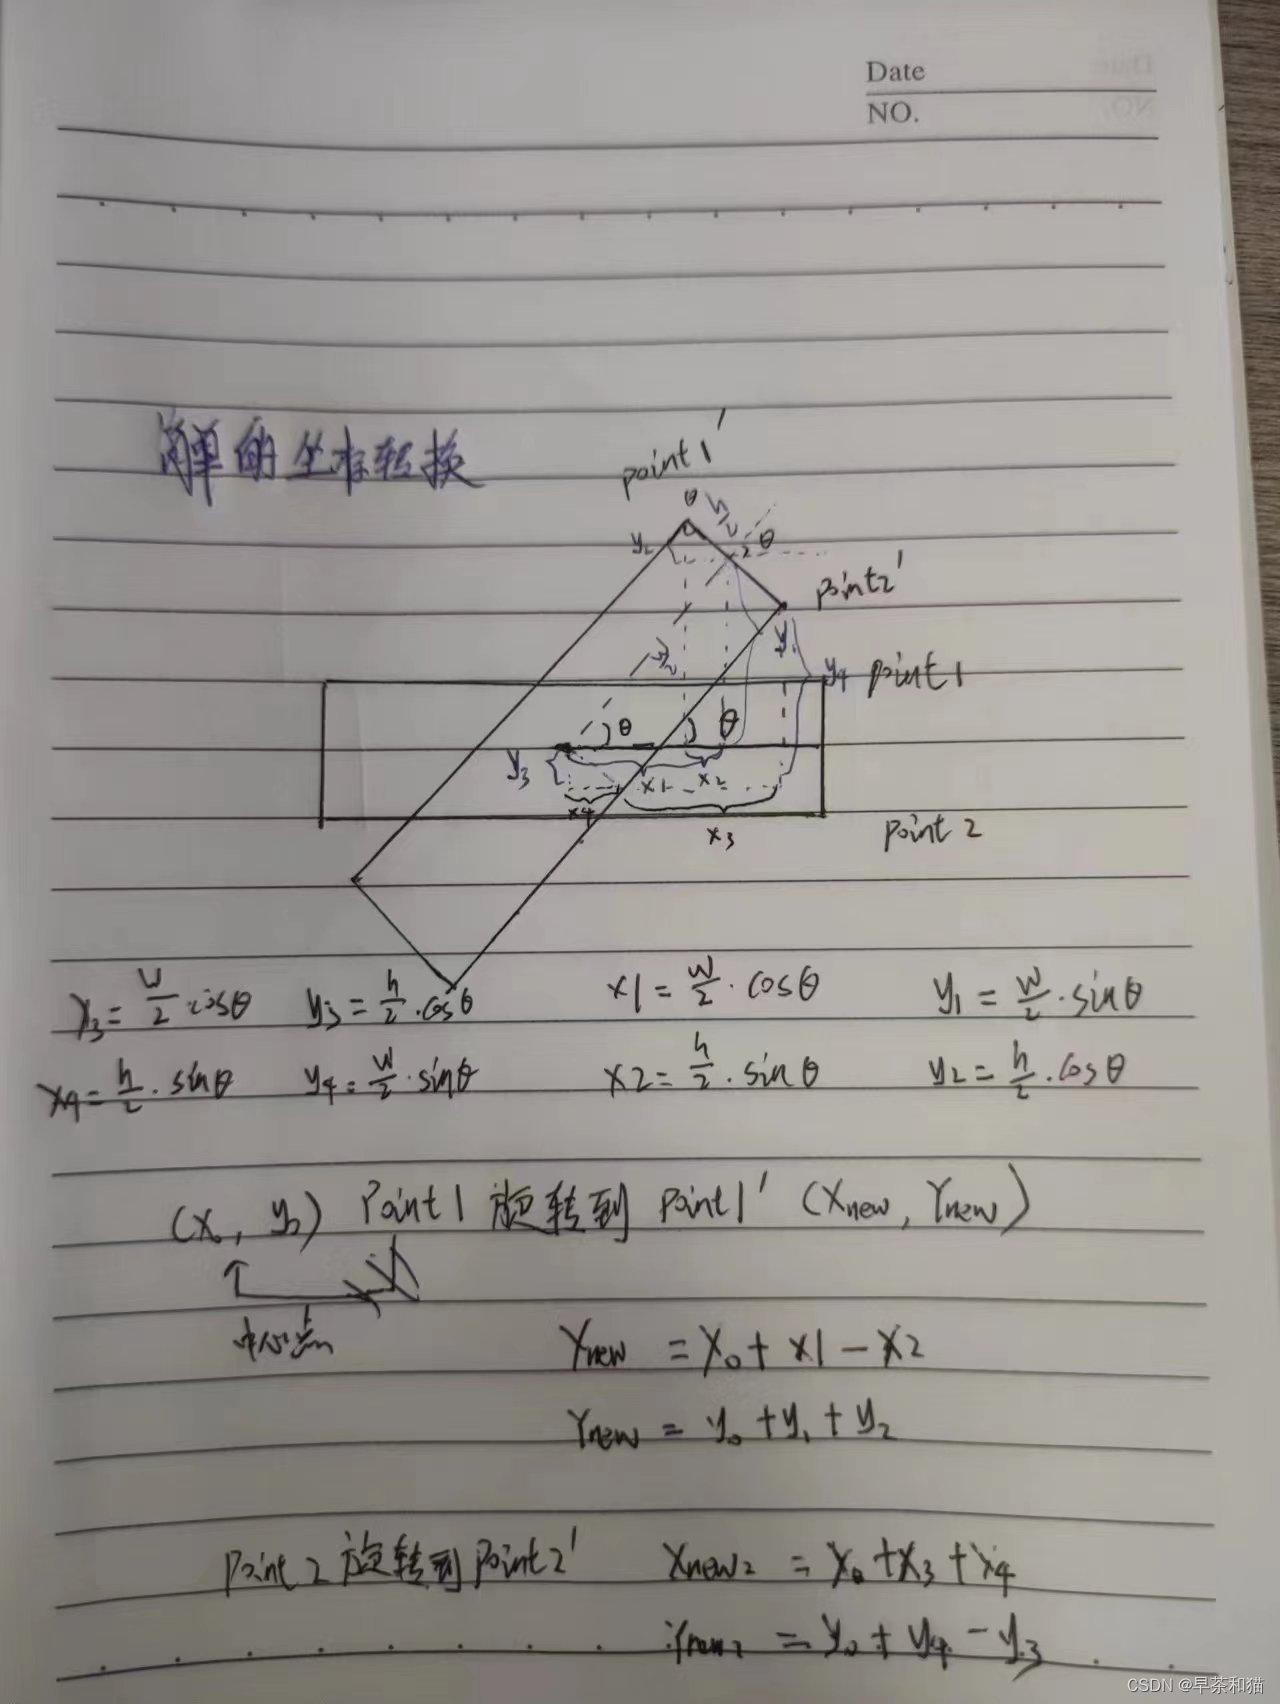 Date
NO.
简单的坐标转换
point1'
θ h/2
y2 θ
point2'
w/2 y1
y4 point1
θ θ
y3 x1 x2
x4
x3 point 2
x3 = w/2 · cosθ y3 = h/2 · cosθ x1 = w/2 · cosθ y1 = w/2 · sinθ
x4 = h/2 · sinθ y4 = w/2 · sinθ x2 = h/2 · sinθ y2 = h/2 · cosθ
(x0, y0) Point1 旋转到 point1' (Xnew, Ynew)
中心点
Xnew = X0 + x1 - x2
Ynew = y0 + y1 + y2
Point 2 旋转到 point2' Xnew2 = x0 + x3 + x4
Ynew2 = y0 + y4 - y3
CSDN @早茶和猫